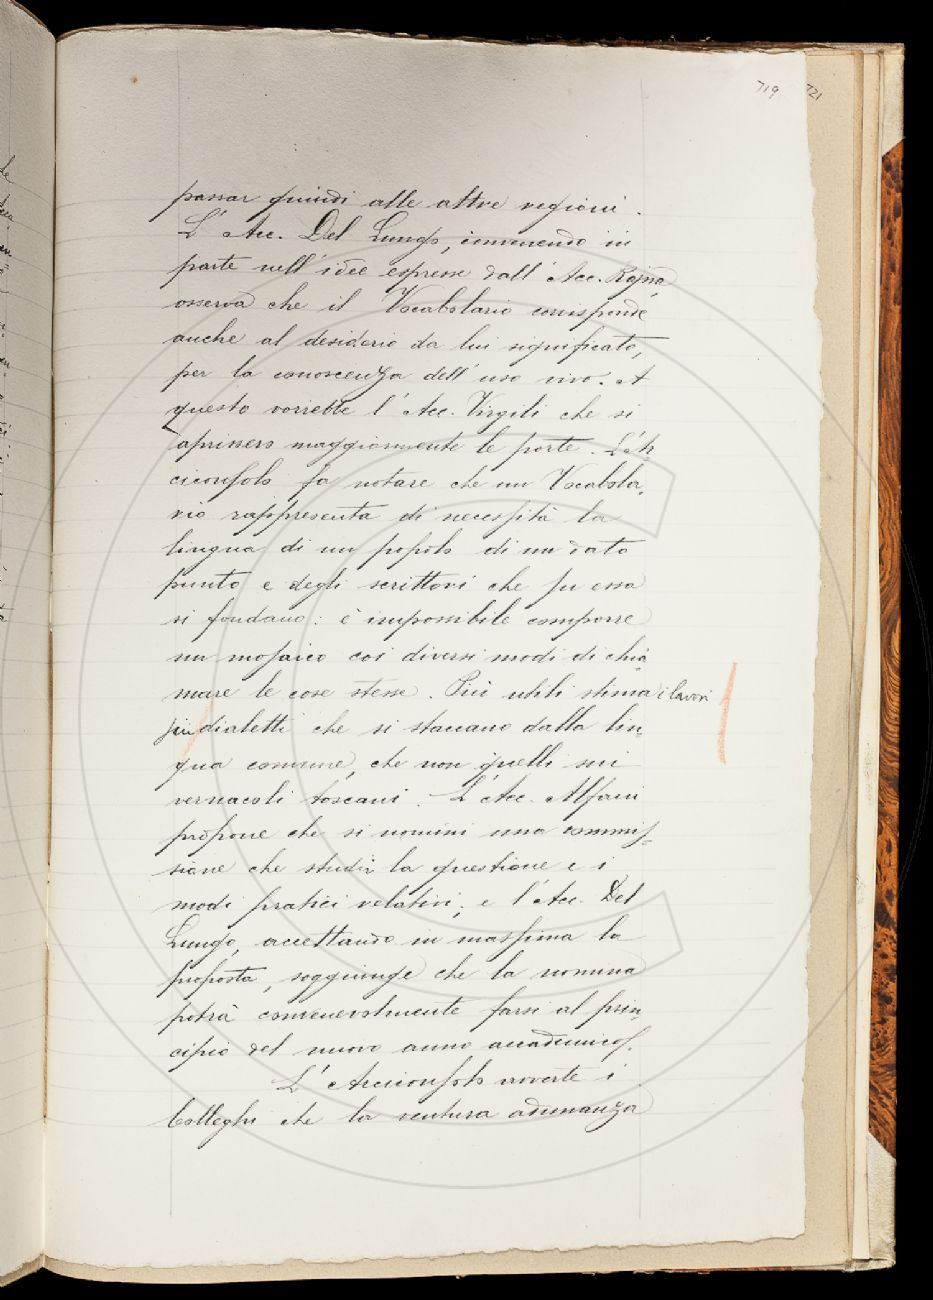 719 721
passar quindi alle altre regioni.
L'Acc. Del Lungo, convenendo in
parte nell'idee espresse dall'Acc. Rajna
osserva che il Vocabolario corrisponde
anche al desiderio da lui significato,
per la conoscenza dell'uso vivo. A
questo vorrebbe l'Acc. Virgili che si
aprissero maggiormente le porte. L'Ar-
ciconsolo fa notare che un Vocabola-
rio rappresenta di necessità la
lingua di un popolo di un dato
punto e degli scrittori che su essa
si fondano: è impossibile comporre
un mosaico coi diversi modi di chia-
mare le cose stesse. Più utili stima i lavori
sui dialetti che si staccano dalla lin-
gua comune, che non quelli sui
vernacoli toscani. L'Acc. Alfani
propone che si nomini una commis-
sione che studi la questione e i
modi pratici relativi; e l'Acc. Del
Lungo, accettando in massima la
proposta, soggiunge che la nomina
potrà convenevolmente farsi al prin-
cipio del nuovo anno accademico.
L'Arciconsolo avverte i
Colleghi che la ventura adunanza